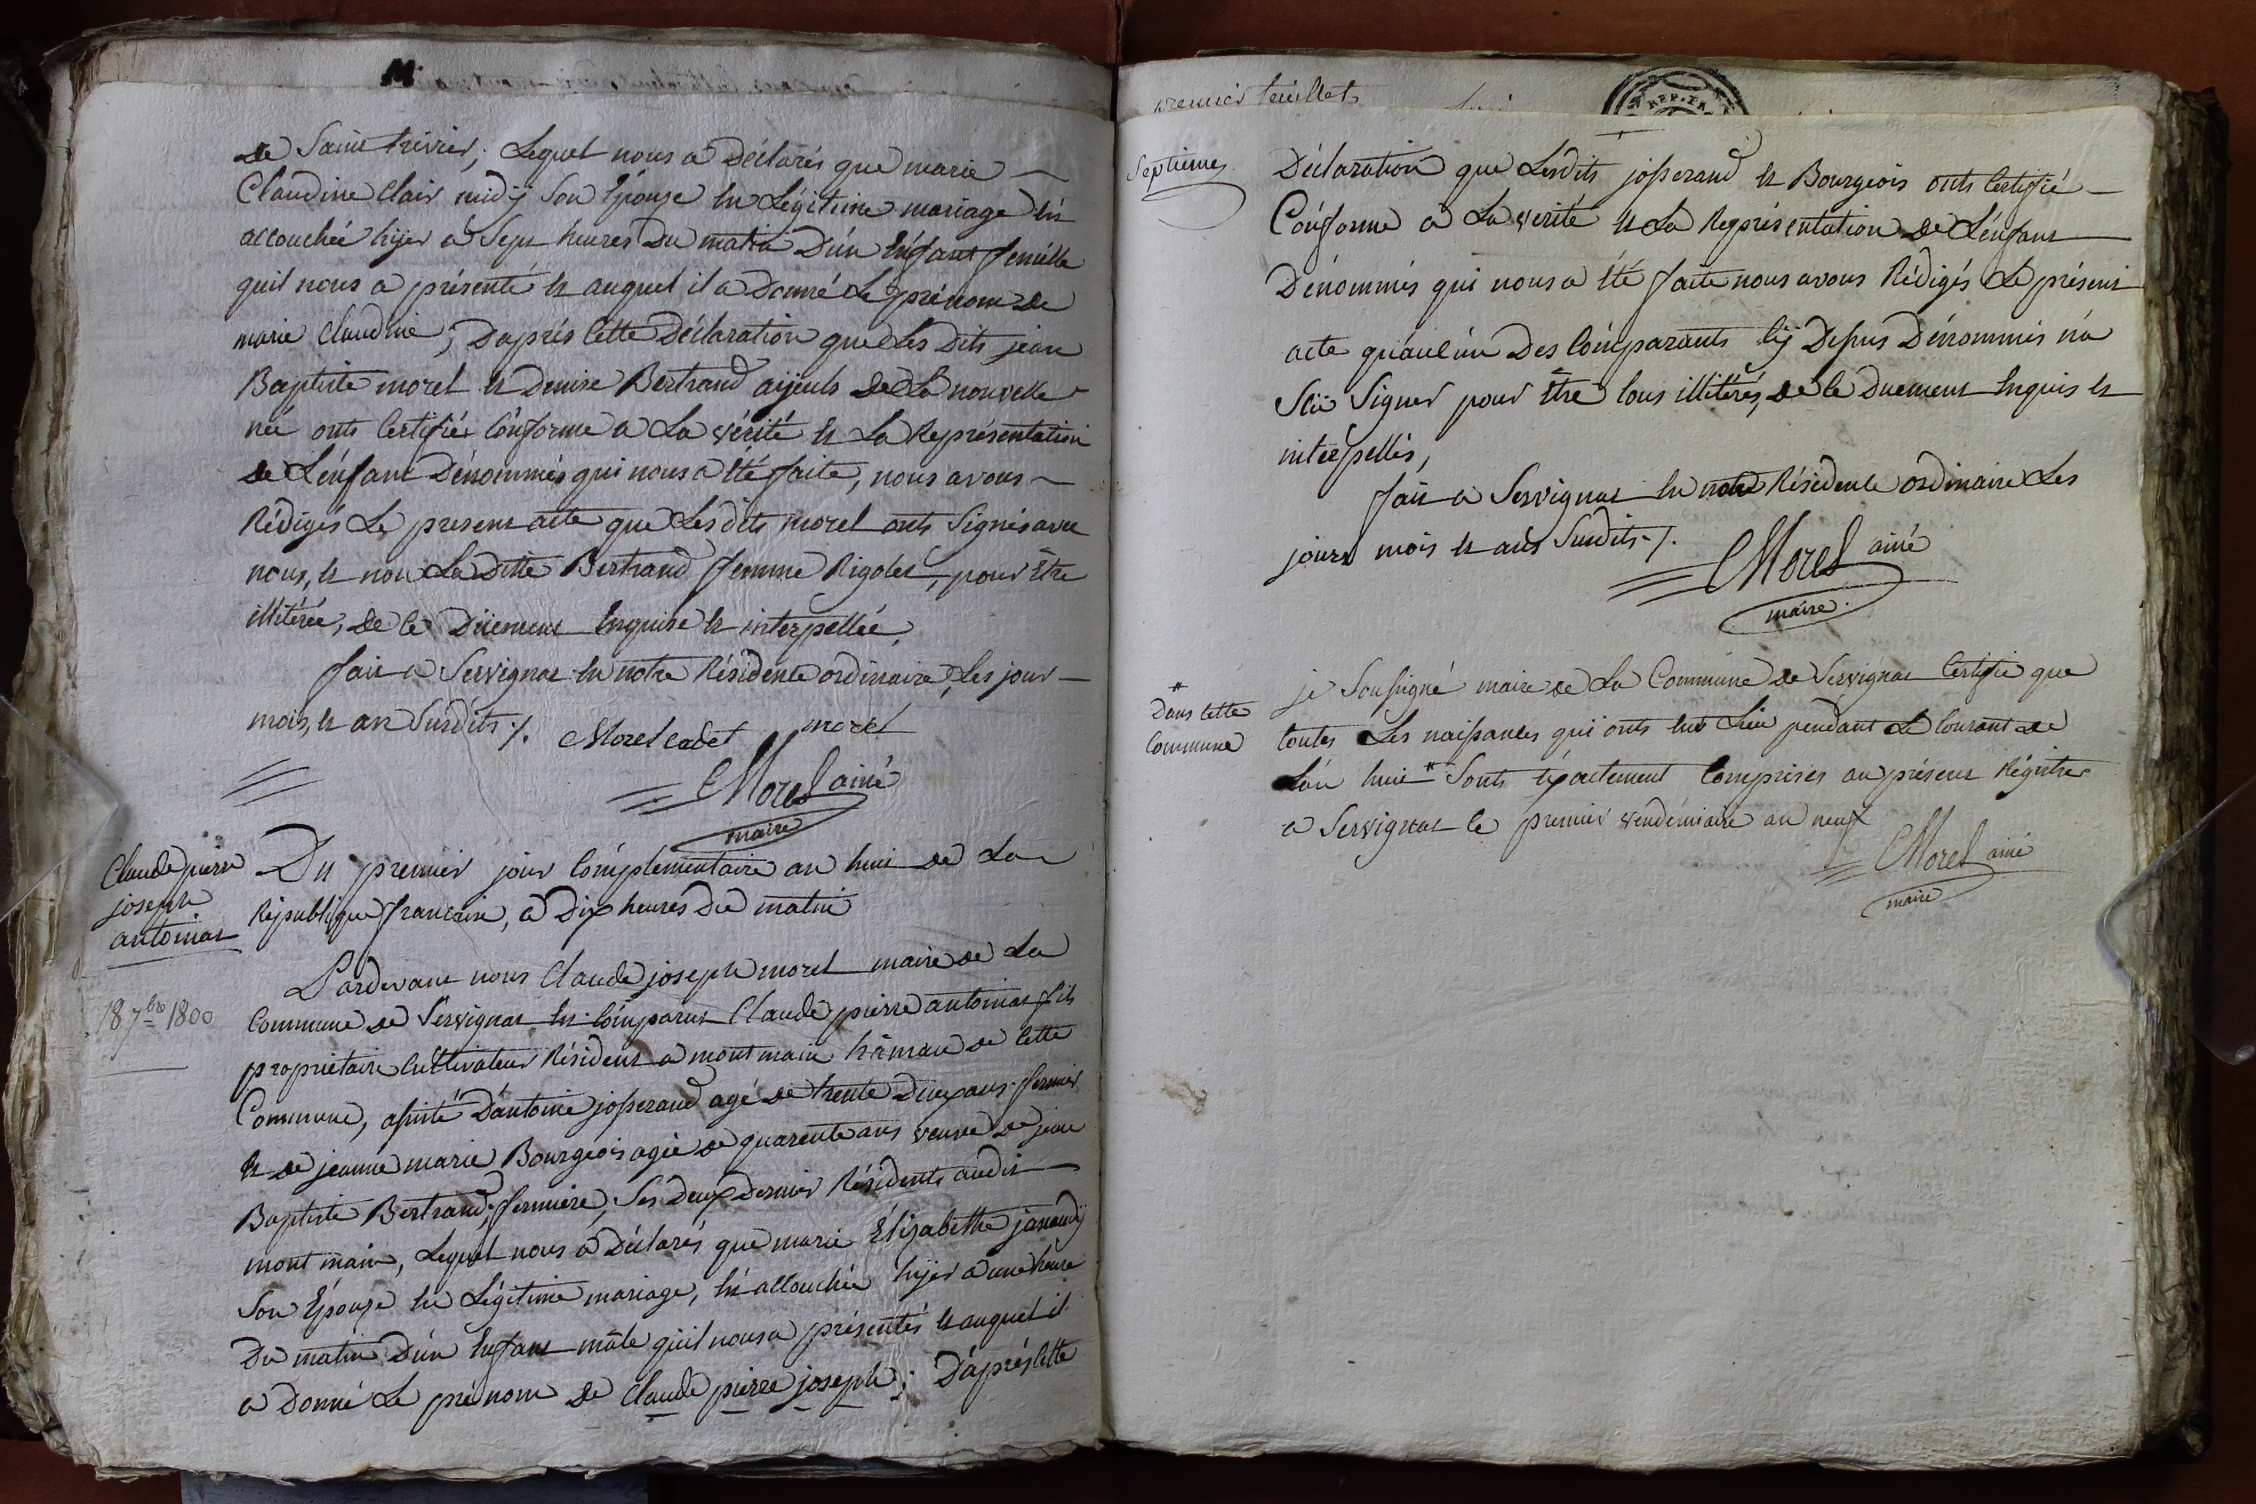 de Saint trivier; Lequel nous a Déclarés que marie
Claudine Clair midÿ Son Epouze en Légitime mariage èst
accouchée hÿer a Sept heures Du matin D'ún Enfant femélle
quil nous a présenté et auquel il a Donné Le prénom de
marie Claudine; Daprès Cette Déclaration que Les Dits jean
Baptiste morel et Denise Bertrand aÿeuls de La nouvelle
née onts Certifiés Conforme a La vérité et La Représentation
de L'énfant Dénommés qui nous a été faite, nous avons
Rédigés Le present acte que Lesdits morel onts Signés avec
nous, et non La Ditte Bertrand femme Rigolet, pour être
illitérée, de ce Düement Enquise et interpellée,
fait a Servignat en notre Résidence ordinaire, Les jour
mois, et an Susdits ./.
Morel cadet morel
Morel ainé
maire
Claude pierre
joseph
antoinat
18 7bre 1800
Du premier jour Complémentaire an huit de La
République francaise, a Dix heures Du matin
Pardevant nous Claude joseph morel maire de La
Commune de Servignat est Comparut Claude pierre antoinat fils
propriétaire Cultivateur Résident a montmain hâmau de Cette
Commune, assisté D'antoine josserand agé de trente Deux ans fermier
et de jeanne marie Bourgeois agée de quarente ans veuve de jean
Baptiste Bertrand, fermière, Ses Deux Dernier Résidents audit
mont main, Lequel nous a Déclarés que marie Élizabethe janaudÿ
Son Epouze en Légitime mariage, èst accouchée hÿer a une heure
Du matin D'ún Enfant mâle quil nous a présentés et auquel il
a Donné Le prénom de Claude pierre joseph; D'après Cette
premier feuillet
REP. FRA
Septieme
Déclaration que Lesdits josserand et Bourgeois onts Certifié
Conforme a La verité et La Représentation de L'énfant
Dénommés qui nous a été faite nous avons Rédigés Le présent
acte qu'aucún Des Comparants Cÿ Dessus Dénommés n'a
Sçü Signer pour être tous illitérés, de ce Duement Enquis et
interpellés,
fait a Servignat en notre Résidence ordinaire Les
jours mois et ans Susdits ./.
Morel ainé
maire
* Dans Cette
Commune
je Soussigné maire de La Commune de Servignat Certifie que
toutes Les naissances qui onts eus Lieu pendant Le Courant de
L'án huit * Sonts éxactement Comprises au présent Régistre
a Servignat le premier vendémiaire an neuf
Morel ainé
maire